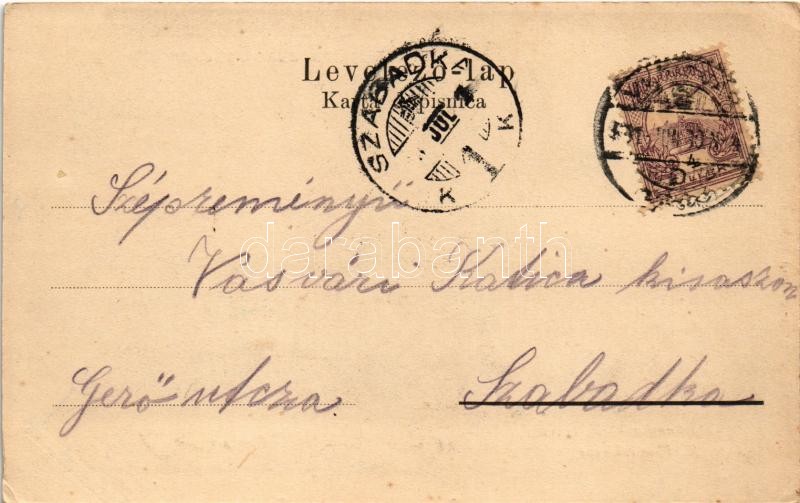 Levelező-lap
Karta Dopisnica
SZABADKA
JUL
1
K K
Szépreményű
Vásvári Katica kisaszon
Gerő utcza
Szabadka
darabanth.com